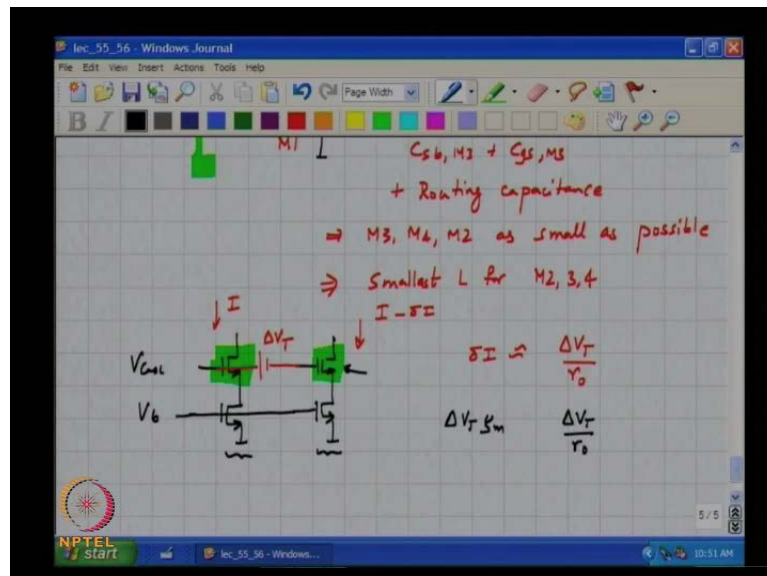 lec_55_56 - Windows Journal
File Edit View Insert Actions Tools Help
Page Width
B I
M1
Csb, M3 + Cgs, M3
+ Routing capacitance
⇒ M3, M4, M2 as small as possible
⇒ Smallest L for M2, 3, 4
I
I - δI
ΔVT
δI ≈ ΔVT / r0
Vb
ΔVT gm ΔVT / r0
5/5
NPTEL
start
lec_55_56 - Windows...
10:51 AM